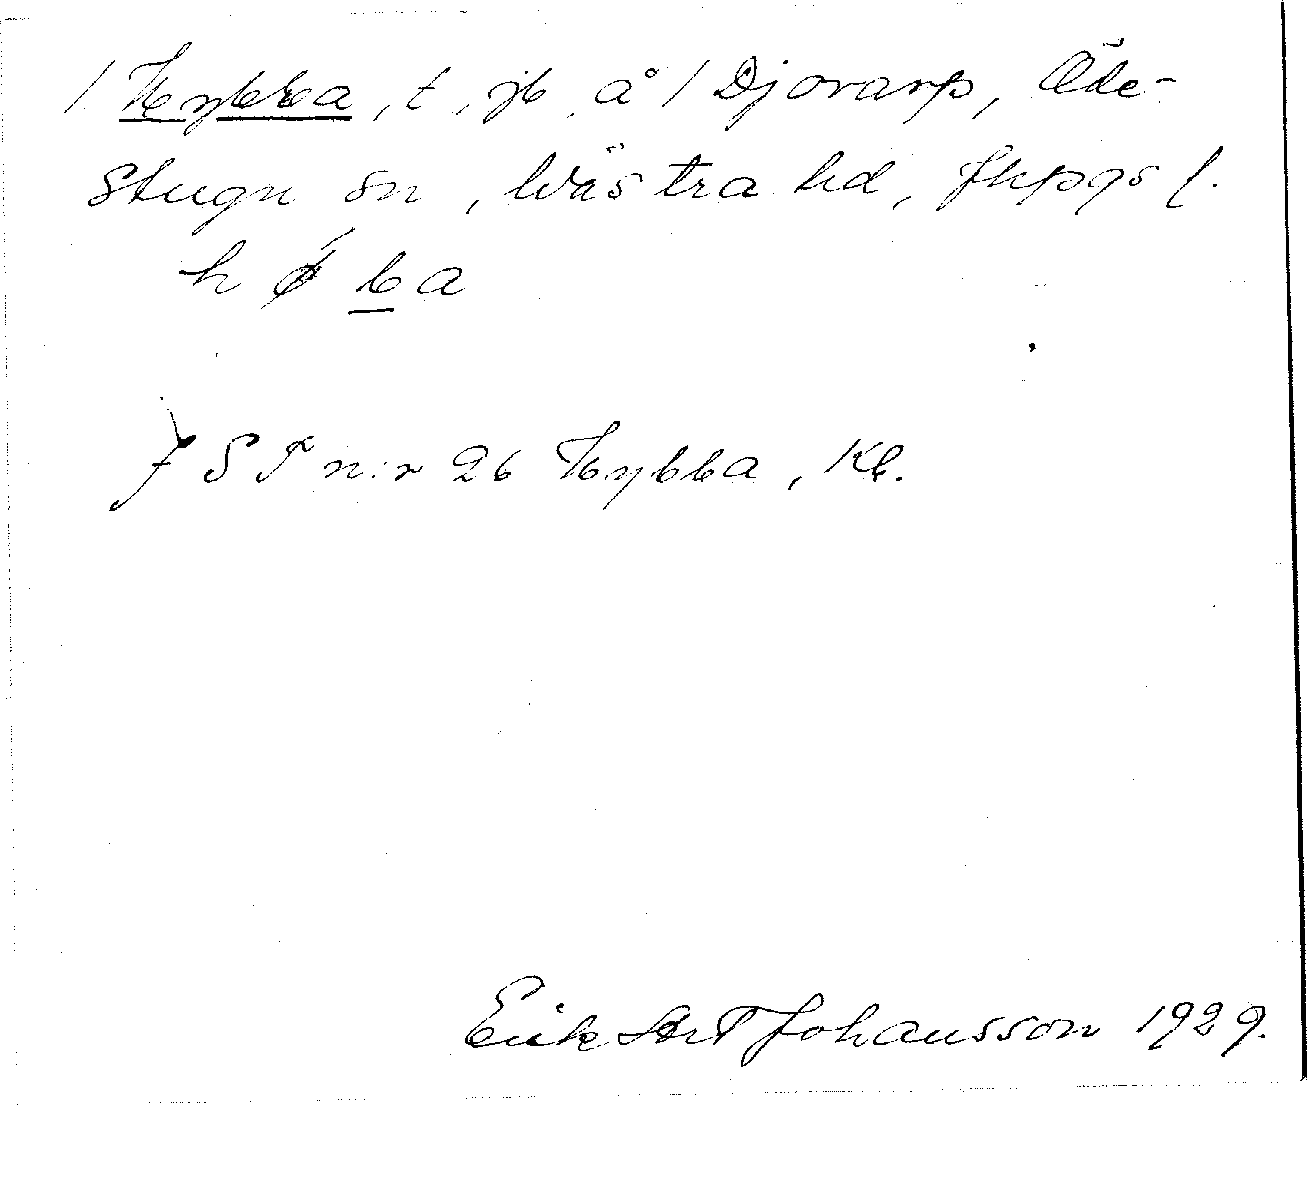 / Hybba, t, jb å / Djorarp, Öde-
stugu sn, Västra hd, Jkpgs l.
h ǿ b a
J S T n:r 26 Hybba, Kl.
Erik Art Johansson 1929.